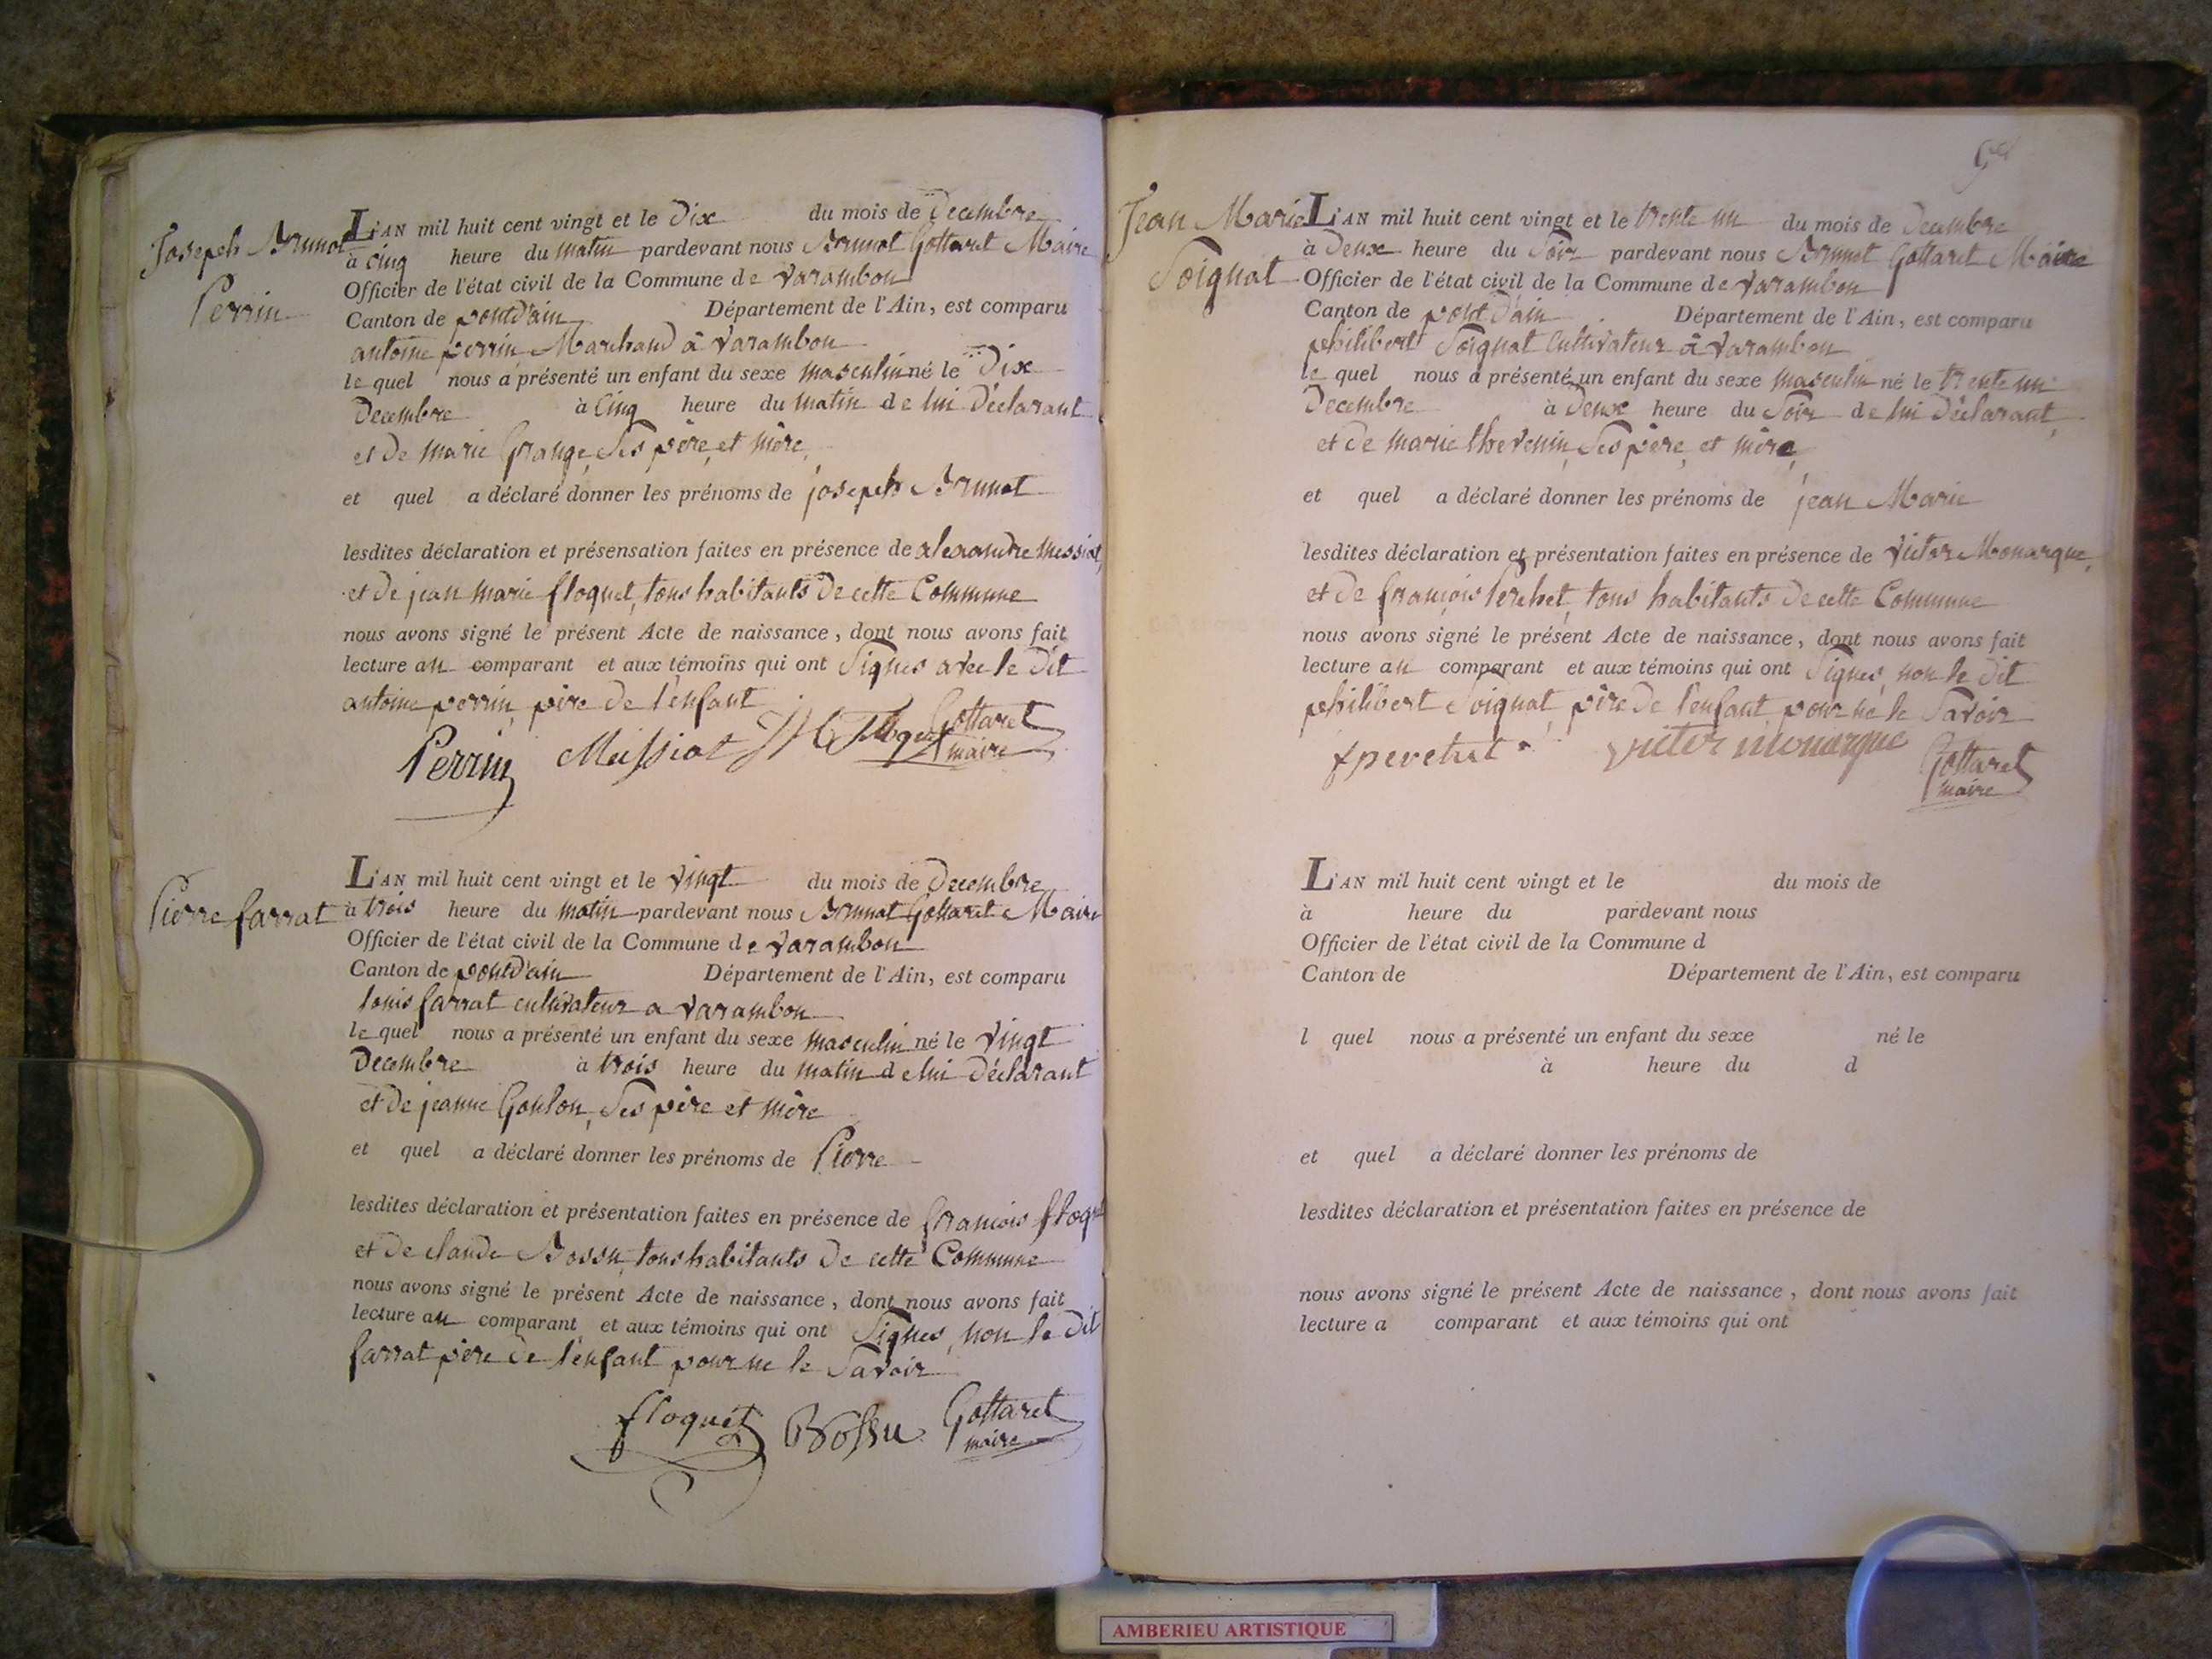 Joseph Brunot
Perrin
L'AN mil huit cent vingt et le Dix du mois de Decembre
à cinq heure du matin pardevant nous Brunot Gottaret Maire
Officier de l'état civil de la Commune de Varambon
Canton de pontd'ain Département de l'Ain, est comparu
antoine perrin Marchand à Varambon
le quel nous a présenté un enfant du sexe masculin né le Dix
Decembre à Cinq heure du matin de lui Déclarant
et De marie Grange, Ses père, et mère,
et quel a déclaré donner les prénoms de joseph Brunot
lesdites déclaration et présensation faites en présence de alexandre Messiat,
et De jean marie floquet, tous habitants De cette Commune
nous avons signé le présent Acte de naissance, dont nous avons fait
lecture au comparant et aux témoins qui ont Signés avec le Dit
antoine perrin, père De l'enfant
Perrin Messiat JM Floquet Gottaret
maire
Pierre farrat
L'AN mil huit cent vingt et le Vingt du mois de Decembre
à trois heure du matin pardevant nous Brunot Gottaret Maire
Officier de l'état civil de la Commune de Varambon
Canton de pontd'ain Département de l'Ain, est comparu
louis farrat cultivateur a Varambon
le quel nous a présenté un enfant du sexe masculin né le Vingt
Decembre à trois heure du matin de lui Déclarant
et De jeanne Goulon, Ses père et mère
et quel a déclaré donner les prénoms de Pierre
lesdites déclaration et présentation faites en présence de francois floquet
et De claude Bossu, tous habitants De cette Commune
nous avons signé le présent Acte de naissance, dont nous avons fait
lecture au comparant et aux témoins qui ont Signés, non le Dit
farrat père De l'enfant pour ne le Savoir
floquet Bossu Gottaret
maire
Jean Marie
Soignat
L'AN mil huit cent vingt et le trente un du mois de Decembre
à Deux heure du Soir pardevant nous Brunot Gottaret Maire
Officier de l'état civil de la Commune de Varambon
Canton de pont D'ain Département de l'Ain, est comparu
philibert Soignat Cultivateur à Varambon
le quel nous a présenté un enfant du sexe masculin né le trente un
Decembre à Deux heure du Soir de lui Déclarant,
et De marie thevenin, Ses père, et mère,
et quel a déclaré donner les prénoms de jean Marie
lesdites déclaration et présentation faites en présence de Victor Monarque,
et De françois perchet, tous habitants De cette Commune
nous avons signé le présent Acte de naissance, dont nous avons fait
lecture au comparant et aux témoins qui ont Signés, non le Dit
philibert Soignat, père De l'enfant, pour ne le Savoir
f perchet victor monarque Gottaret
maire
L'AN mil huit cent vingt et le du mois de
à heure du pardevant nous
Officier de l'état civil de la Commune d
Canton de Département de l'Ain, est comparu
l quel nous a présenté un enfant du sexe né le
à heure du d
et quel a déclaré donner les prénoms de
lesdites déclaration et présentation faites en présence de
nous avons signé le présent Acte de naissance, dont nous avons fait
lecture a comparant et aux témoins qui ont
AMBERIEU ARTISTIQUE